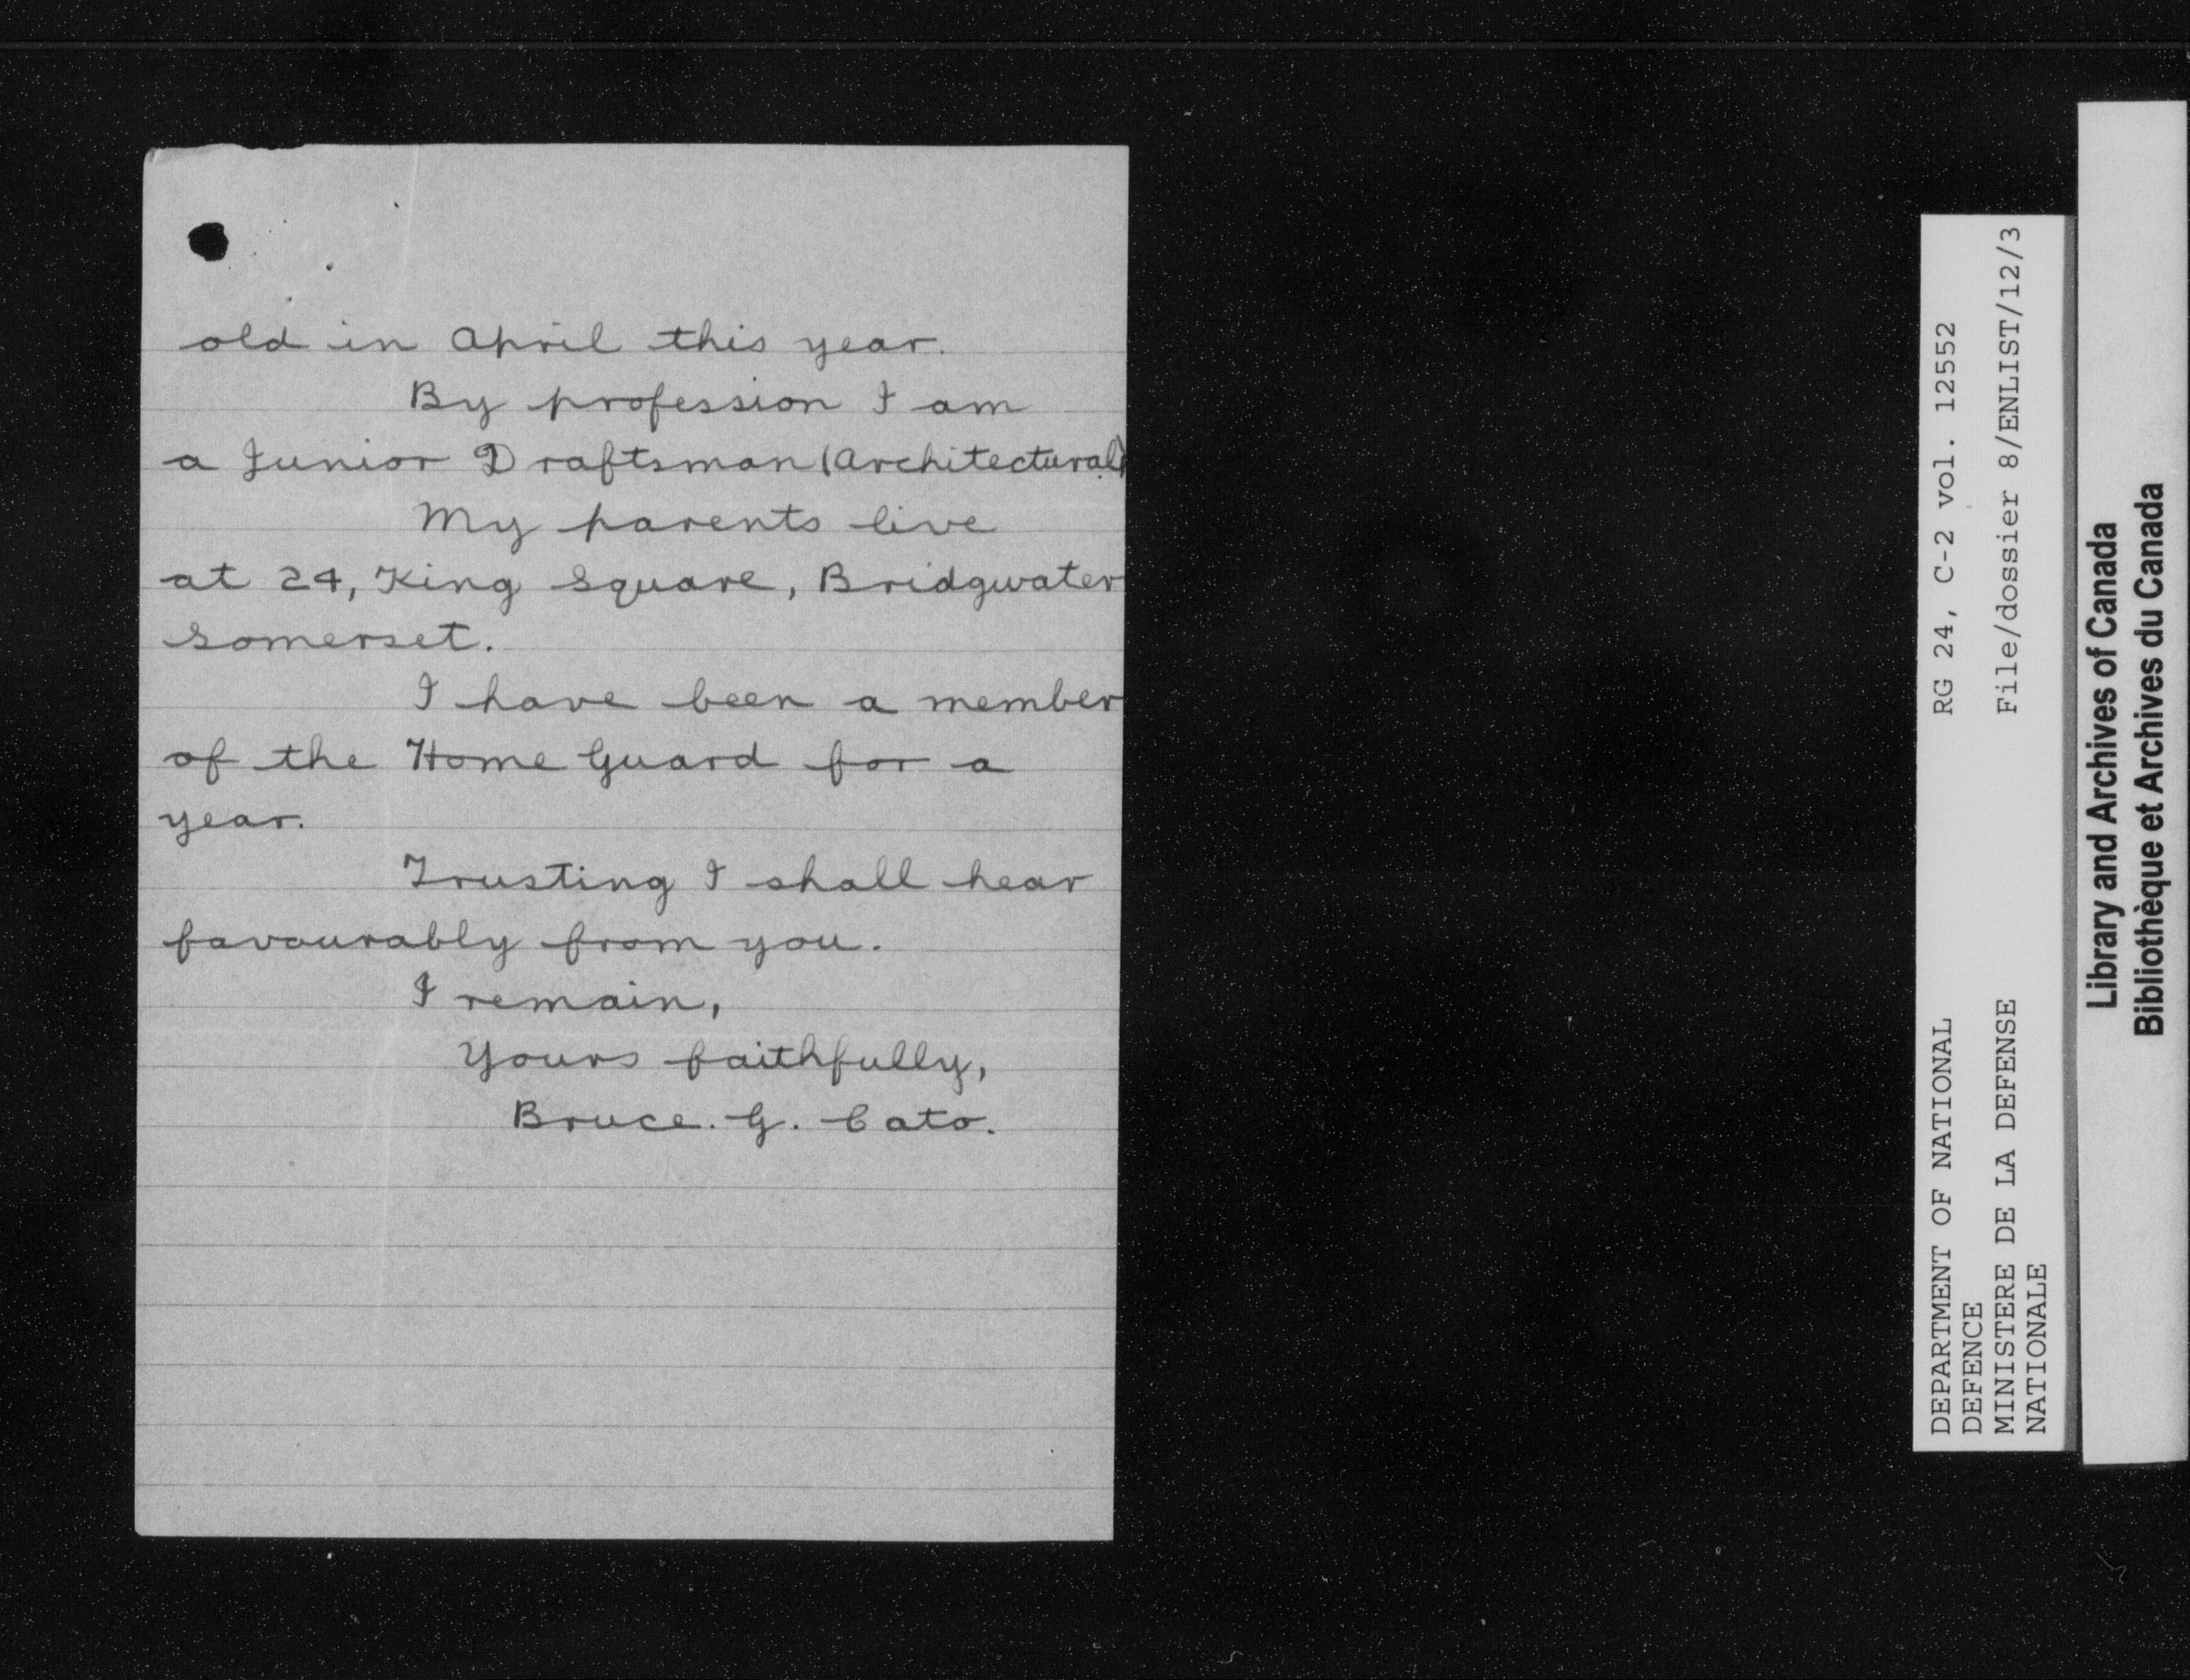 old in April this year.
By profession I am
a Junior Draftsman (Architectural)
My parents live
at 24, King Square, Bridgwater
Somerset.
I have been a member
of the Home Guard for a
year.
Trusting I shall hear
favourably from you.
I remain,
Yours faithfully,
Bruce. G. Cato.
DEPARTMENT OF NATIONAL
DEFENCE
MINISTERE DE LA DEFENSE
NATIONALE
RG 24, C-2 vol. 12552
File/dossier 8/ENLIST/12/3
Library and Archives of Canada
Bibliothèque et Archives du Canada